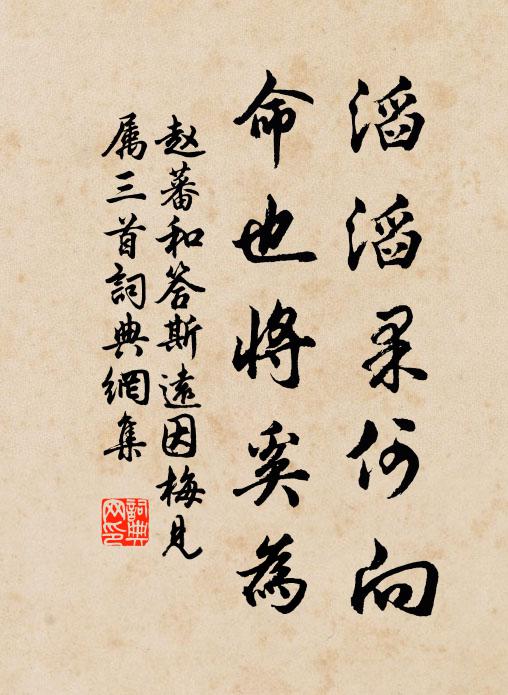 滔滔果何向
命也将奚為
赵蕃和答斯遠因梅見
属三首詞典網集
詞典网印